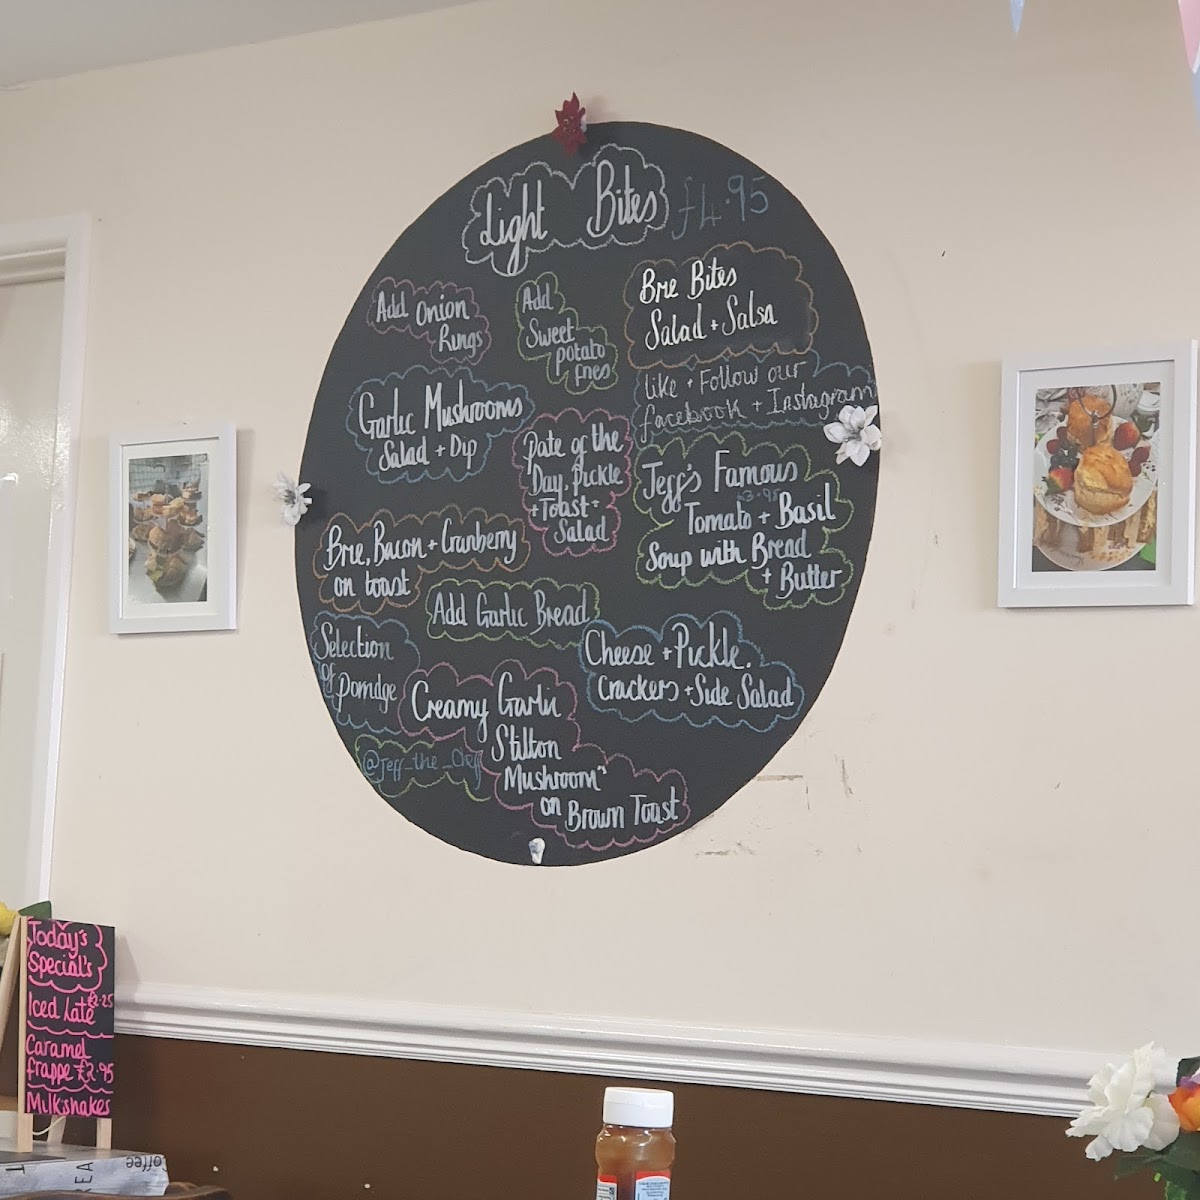 Light Bites £4.95
Add Onion
Rings
Add
Sweet
potato
fries
Brie Bites
Salad + Salsa
like + Follow our
facebook + Instagram
Garlic Mushrooms
Salad + Dip
Pate of the
Day, Pickle
+ Toast +
Salad
Jeff's Famous
£3.95
Tomato + Basil
Soup with Bread
+ Butter
Brie, Bacon + Cranberry
on toast
Add Garlic Bread
Selection
of
Porridge
Cheese + Pickle.
Crackers + Side Salad
Creamy Garlic
Stilton
Mushroom's
on Brown Toast
@jeff_the_chef
Today's
Special's
Iced Late £2.25
Caramel
frappe £2.95
Milkshakes
Coffee